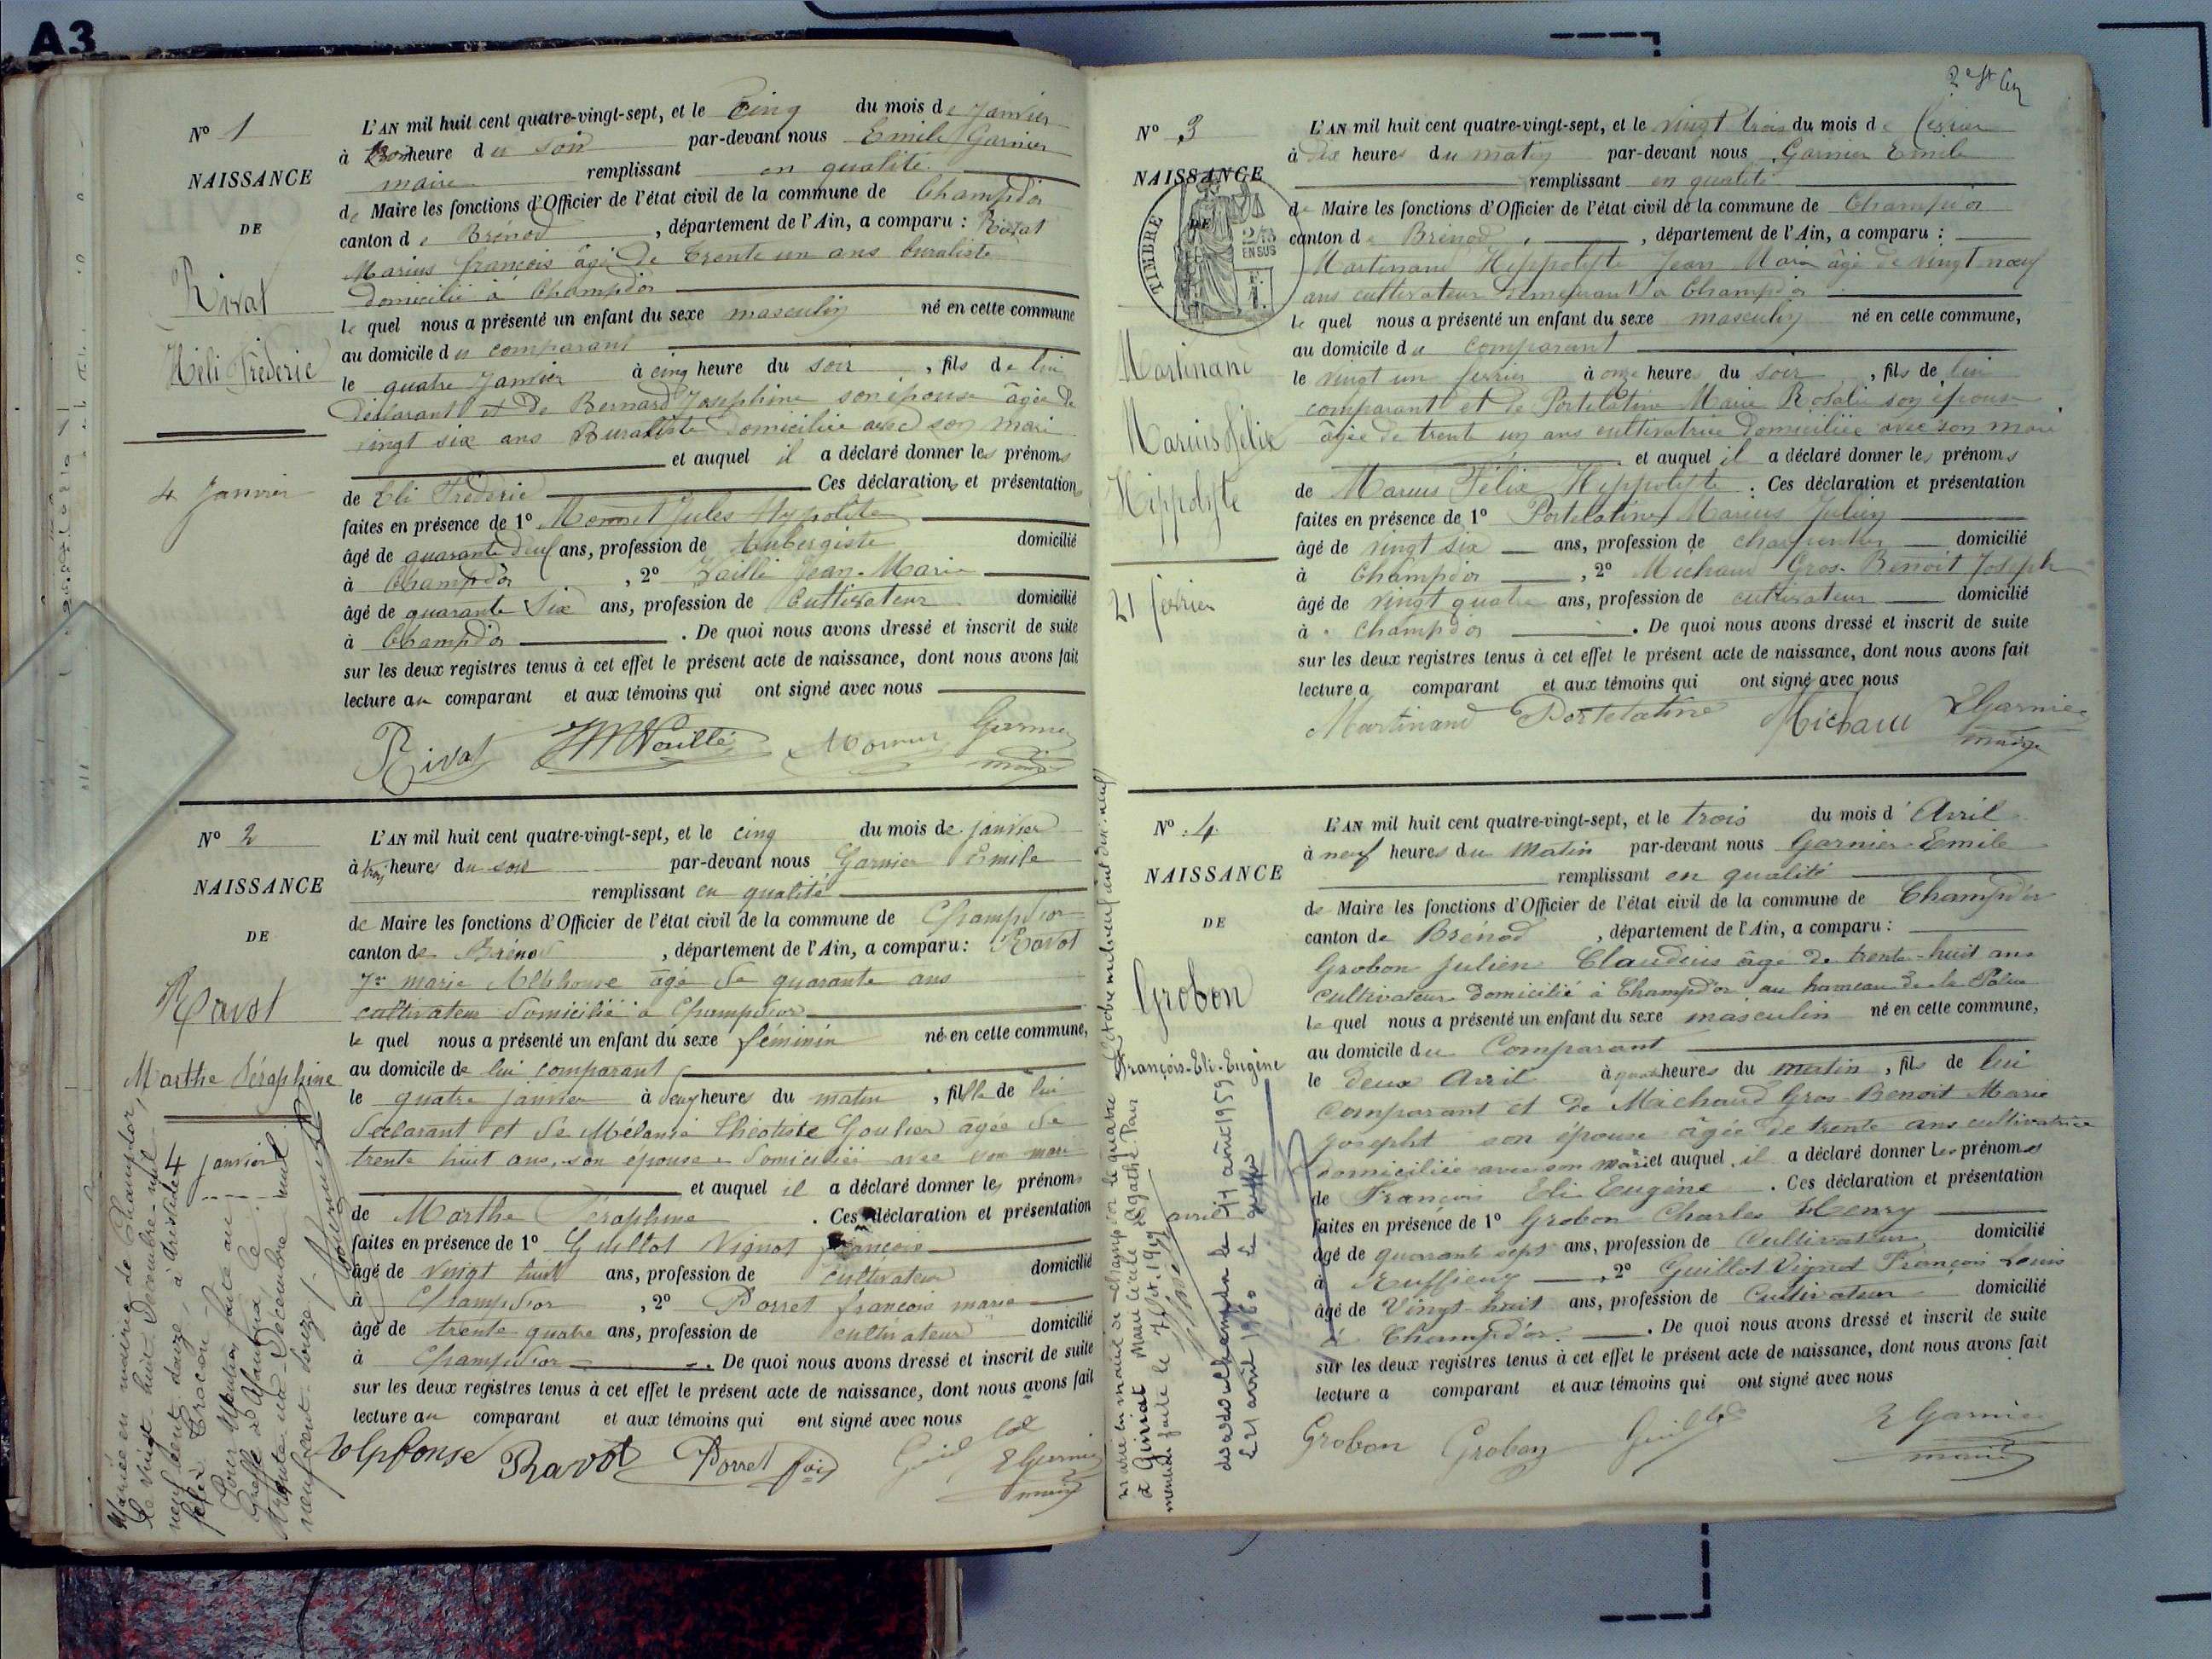 A3
N° 1
NAISSANCE
DE
Rivat
Héli Fréderic
4 Janvier
L'AN mil huit cent quatre-vingt-sept, et le Cinq du mois de Janvier
à heure du soir par-devant nous Emile Garnier
maire remplissant en qualité
de Maire les fonctions d'Officier de l'état civil de la commune de Champdor
canton de Brénod, département de l'Ain, a comparu : Rivat
Marius françois âgé de trente un ans buraliste
domicilié à Champdor
le quel nous a présenté un enfant du sexe masculin né en cette commune
au domicile du comparant
le quatre Janvier à cinq heure du soir, fils de lui
déclarant et de Bernard Josephine son épouse âgée de
vingt six ans Buraliste domiciliée avec son mari
et auquel il a déclaré donner les prénoms
de Eli Fréderic Ces déclarations et présentations
faites en présence de 1° Monnet Jules Hypolite
âgé de quarante neuf ans, profession de Aubergiste domicilié
à Champdor, 2° Vaillé Jean-Marie
âgé de quarante six ans, profession de Cultivateur domicilié
à Champdor. De quoi nous avons dressé et inscrit de suite
sur les deux registres tenus à cet effet le présent acte de naissance, dont nous avons fait
lecture au comparant et aux témoins qui ont signé avec nous
Rivat JM Vaillé Monnet Garnier
maire
N° 2
NAISSANCE
DE
Ravot
Marthe Séraphine
4 janvier
L'AN mil huit cent quatre-vingt-sept, et le cinq du mois de janvier
à trois heures du soir par-devant nous Garnier Emile
remplissant en qualité
de Maire les fonctions d'Officier de l'état civil de la commune de Champdor
canton de Brénod, département de l'Ain, a comparu : Ravot
marie Alphonse âgé de quarante ans
cultivateur domicilié à Champdor
le quel nous a présenté un enfant du sexe féminin né en cette commune,
au domicile de lui comparant
le quatre janvier à deux heures du matin, fille de lui
déclarant et de Mélanie Théotiste Goulier âgée de
trente huit ans, son épouse domiciliée avec son mari
et auquel il a déclaré donner les prénoms
de Marthe Séraphine. Ces déclaration et présentation
faites en présence de 1° Guillot Vignot françois
âgé de vingt huit ans, profession de cultivateur domicilié
à Champdor, 2° Porret françois marie
âgé de trente quatre ans, profession de cultivateur domicilié
à Champdor. De quoi nous avons dressé et inscrit de suite
sur les deux registres tenus à cet effet le présent acte de naissance, dont nous avons fait
lecture au comparant et aux témoins qui ont signé avec nous
Alphonse Ravot Porret fois Guillot E Garnier
maire
Mariée en mairie de Champdor,
le vingt-huit Décembre mil
neuf cent douze, à
Pour Mention faite au
Greffe de Nantua, le
trente un Décembre mil
neuf cent douze
N° 3
NAISSANCE
DE
TIMBRE
2/10
EN SUS
Martinand
Marius Félix
Hippolyte
21 février
L'AN mil huit cent quatre-vingt-sept, et le vingt trois du mois de février
à dix heures du matin par-devant nous Garnier Emile
remplissant en qualité
de Maire les fonctions d'Officier de l'état civil de la commune de Champdor
canton de Brénod, département de l'Ain, a comparu :
Martinand Hippolyte Jean Marie âgé de vingt neuf
ans cultivateur demeurant à Champdor
le quel nous a présenté un enfant du sexe masculin né en cette commune,
au domicile du comparant
le vingt un février à onze heures du soir, fils de lui
comparant et de Portelatine Marie Rosalie son épouse
âgée de trente un ans cultivatrice domiciliée avec son mari
et auquel il a déclaré donner les prénoms
de Marius Félix Hippolyte. Ces déclaration et présentation
faites en présence de 1° Portelatine Marius Julien
âgé de vingt six ans, profession de charpentier domicilié
à Champdor, 2° Michaud Gros-Benoit Joseph
âgé de vingt quatre ans, profession de cultivateur domicilié
à Champdor. De quoi nous avons dressé et inscrit de suite
sur les deux registres tenus à cet effet le présent acte de naissance, dont nous avons fait
lecture a comparant et aux témoins qui ont signé avec nous
Martinand Portelatine Michaud E Garnier
maire
N° 4
NAISSANCE
DE
Grobon
François-Eli-Eugène
2 avril
L'AN mil huit cent quatre-vingt-sept, et le trois du mois d'Avril
à neuf heures du matin par-devant nous Garnier Emile
remplissant en qualité
de Maire les fonctions d'Officier de l'état civil de la commune de Champd'or
canton de Brénod, département de l'Ain, a comparu :
Grobon Julien Claudius âgé de trente-huit ans
cultivateur domicilié à Champd'or au hameau de la
le quel nous a présenté un enfant du sexe masculin né en cette commune,
au domicile du Comparant
le deux Avril à quatre heures du matin, fils de lui
Comparant et de Michaud Gros Benoit Marie
Josepht son épouse âgée de trente ans cultivatrice
domiciliée avec son mari et auquel il a déclaré donner les prénoms
de François Eli Eugène. Ces déclaration et présentation
faites en présence de 1° Grobon Charles Henry
âgé de quarante sept ans, profession de Cultivateur domicilié
à Ruffieux, 2° Guillot Vignot François Louis
âgé de Vingt-huit ans, profession de Cultivateur domicilié
à Champd'or. De quoi nous avons dressé et inscrit de suite
sur les deux registres tenus à cet effet le présent acte de naissance, dont nous avons fait
lecture a comparant et aux témoins qui ont signé avec nous
Grobon Grobon Guillot E Garnier
maire
Marié en mairie de Champdor le quatre Octobre mil neuf cent dix-neuf
à Ginod Marie Cécile Agathe
mention faite le 7 Oct. 1919
décédé à Champdor le 11 août 1959